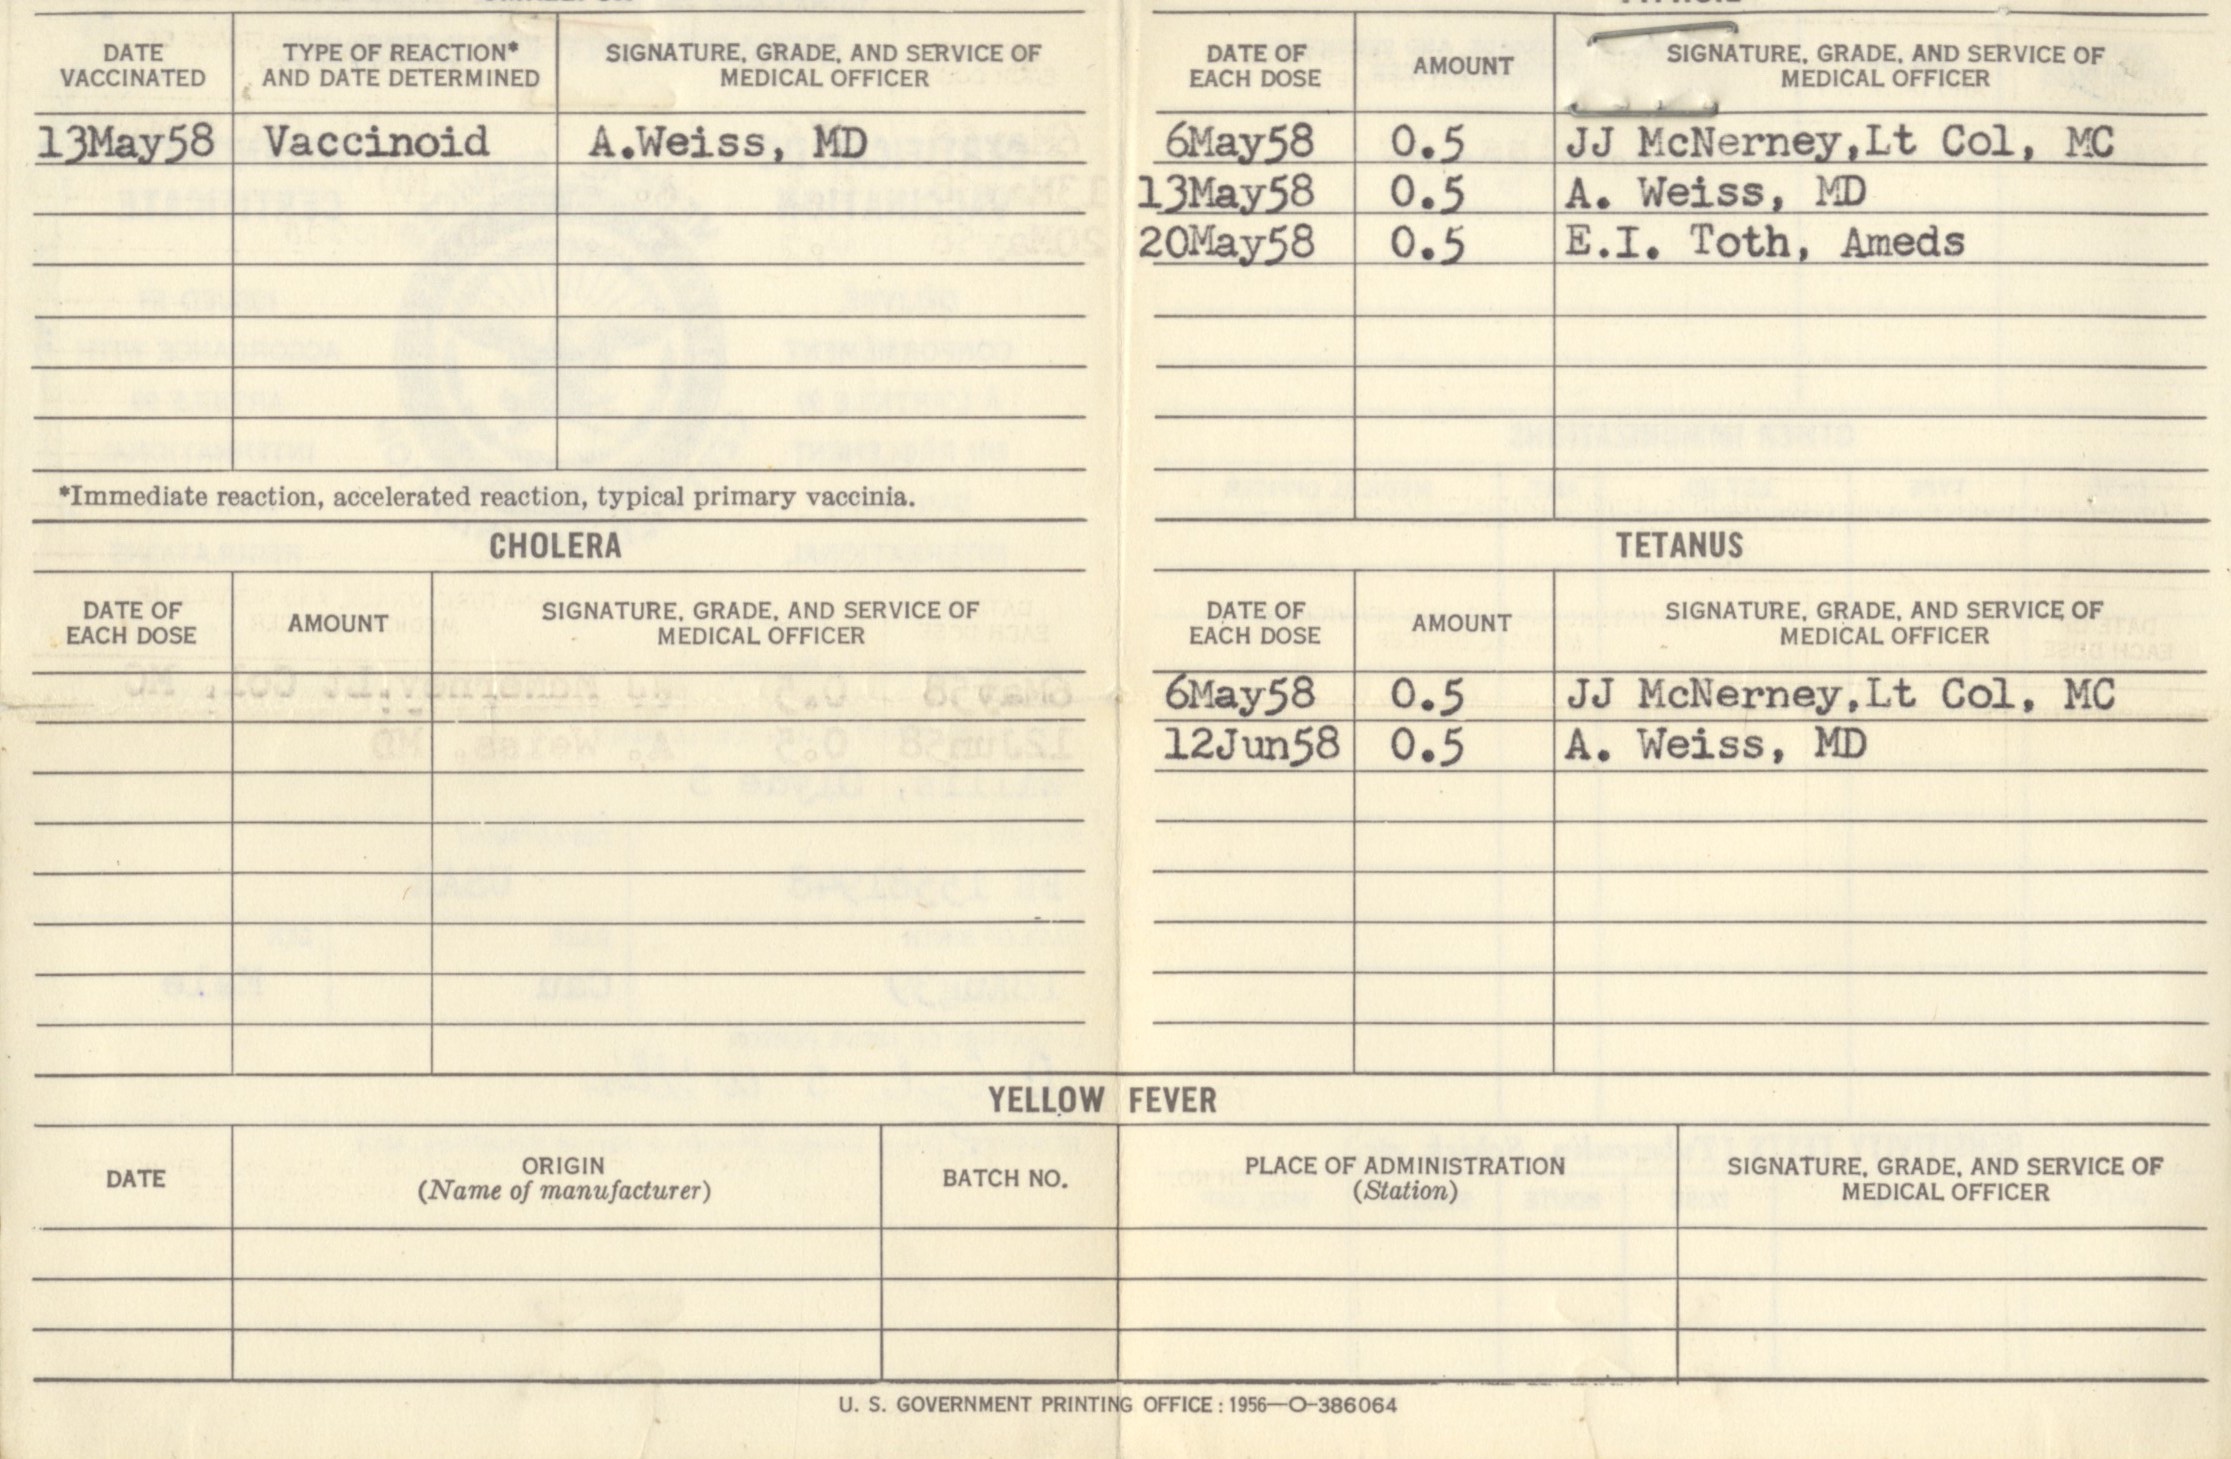 DATE VACCINATED | TYPE OF REACTION* AND DATE DETERMINED | SIGNATURE, GRADE, AND SERVICE OF MEDICAL OFFICER
13May58 Vaccinoid A.Weiss, MD
*Immediate reaction, accelerated reaction, typical primary vaccinia.
DATE OF EACH DOSE | AMOUNT | SIGNATURE, GRADE, AND SERVICE OF MEDICAL OFFICER
6May58 0.5 JJ McNerney,Lt Col, MC
13May58 0.5 A. Weiss, MD
20May58 0.5 E.I. Toth, Ameds
CHOLERA
DATE OF EACH DOSE | AMOUNT | SIGNATURE, GRADE, AND SERVICE OF MEDICAL OFFICER
TETANUS
DATE OF EACH DOSE | AMOUNT | SIGNATURE, GRADE, AND SERVICE OF MEDICAL OFFICER
6May58 0.5 JJ McNerney,Lt Col, MC
12Jun58 0.5 A. Weiss, MD
YELLOW FEVER
DATE | ORIGIN (Name of manufacturer) | BATCH NO. | PLACE OF ADMINISTRATION (Station) | SIGNATURE, GRADE, AND SERVICE OF MEDICAL OFFICER
U. S. GOVERNMENT PRINTING OFFICE : 1956—O-386064